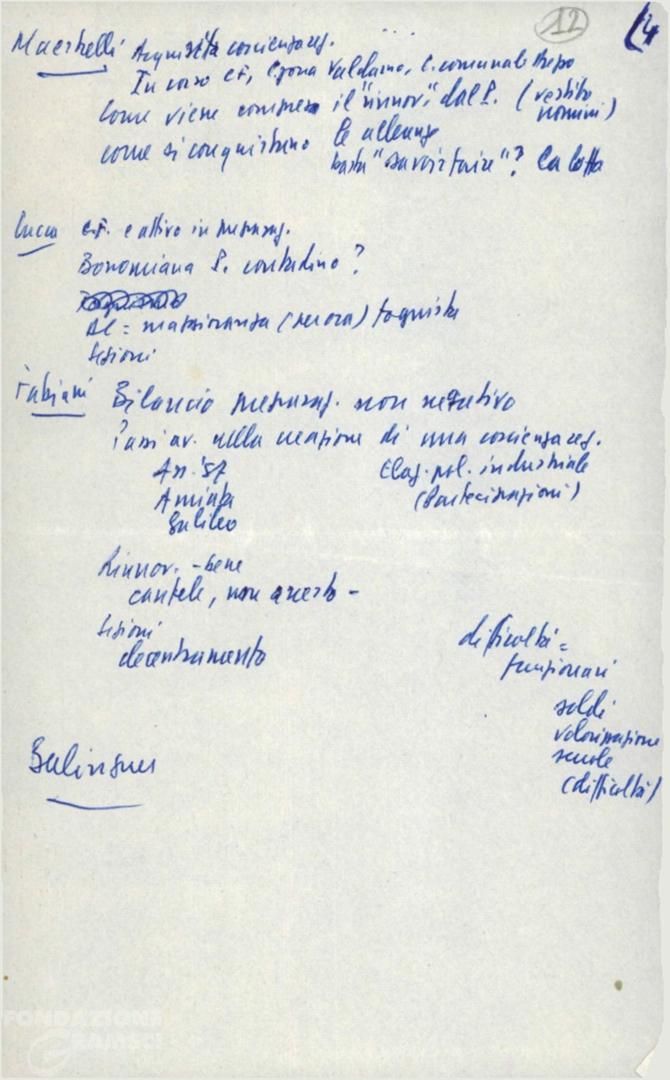 12 4
Macchelli Acquisita coscienza reg.
In corso CF, C. zona Valdarno, C. comunale
Come viene compreso il "rinnov." dal P. (vestito
nomini)
come si conquistano le alleanze
basta "savoir faire"? La lotta
Lucca C.F. e attivo in
Bonomiana P. contadino?
= maggioranza (
sezioni
Fabiani Bilancio non negativo
Passi av. nella creazione di una coscienza reg.
Elag. pol. industriale
(Partecipazioni)
Amiata
Galileo
Rinnov. - bene
cautele, non questo -
sezioni
decentramento
difficoltà =
funzionari
soldi
valorizzazione
scuole
(difficoltà)
Berlinguer
FONDAZIONE
GRAMSCI